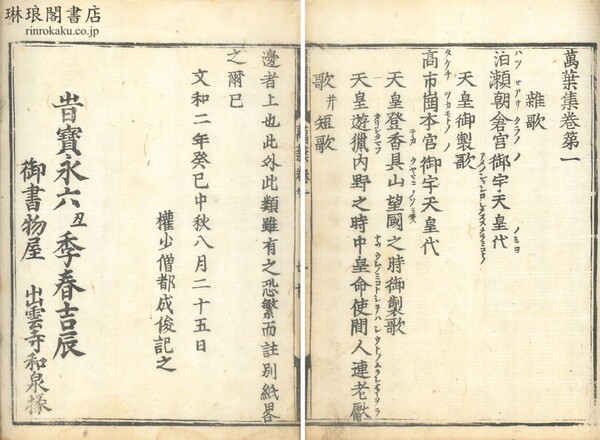 琳琅閣書店
rinrokaku.co.jp
萬葉集卷第一
雜歌
泊瀬朝倉宮御宇天皇代
天皇御製歌
高市崗本宮御宇天皇代
天皇登香具山望國之時御製歌
天皇遊獵内野之時中皇命使間人連老獻
歌并短歌
邊者上也此外此類雖有之恐繁而註別紙畧
之爾已
文和二年癸巳中秋八月二十五日
權少僧都成俊記之
旹寶永六丑季春吉辰
御書物屋 出雲寺和泉掾